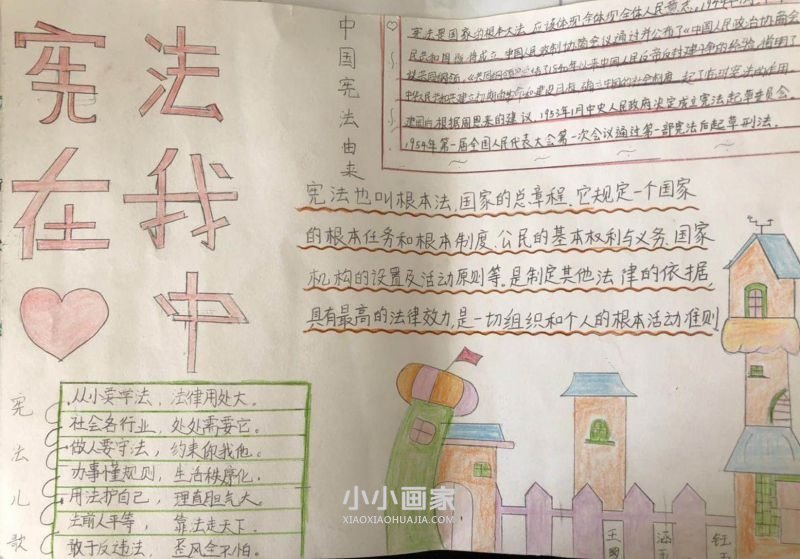 宪法
在我
中
中国宪法由来
宪法是国家的根本大法,应该体现全体人民意志。1949年
通过并公布了《中国人民政治协商会
建国后根据周恩来的建议,1953年1月中央人民政府决定成立宪法起草委员会。
1954年第一届全国人民代表大会第一次会议通过第一部宪法后起草刑法。
宪法也叫根本法,国家的总章程,它规定一个国家
的根本任务和根本制度、公民的基本权利与义务、国家
机构的设置及活动原则等。是制定其他法律的依据,
具有最高的法律效力,是一切组织和个人的根本活动准则
宪法儿歌
从小要学法,法律用处大。
社会各行业,处处需要它。
做人要守法,约束你我他。
办事懂规则,生活秩序化。
用法护自己,理直胆气大。
法前人平等,靠法走天下。
敢于反违法,歪风全不怕。
小小画家
XIAOXIAOHUAJIA.COM
王
涵
钰